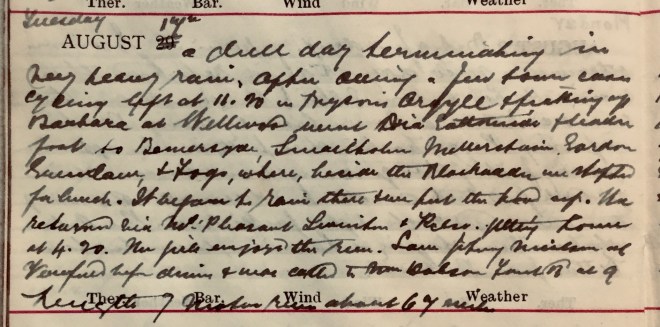 Ther. Bar. Wind Weather
Tuesday
AUGUST 29 a dull day terminating in
very heavy rain, After seeing a few town cases
Cycling left at 11.20 in Argyll & picking up
Barbara at Wellwood went via &
foot to Bemersyde, Smailholm Mellerstain Gordon
Greenlaw, & Fogo, where, beside the Blackadder we stopped
for lunch. It began to rain there & we put the hood up. We
returned via Mt. Pleasant Swinton & Kelso. getting home
at 4.20. The girls enjoyed the run. Saw
before dinner & was called to Wm Dobson at 9
Ther. Bar. Wind Weather
Length of Motor run about 67 miles